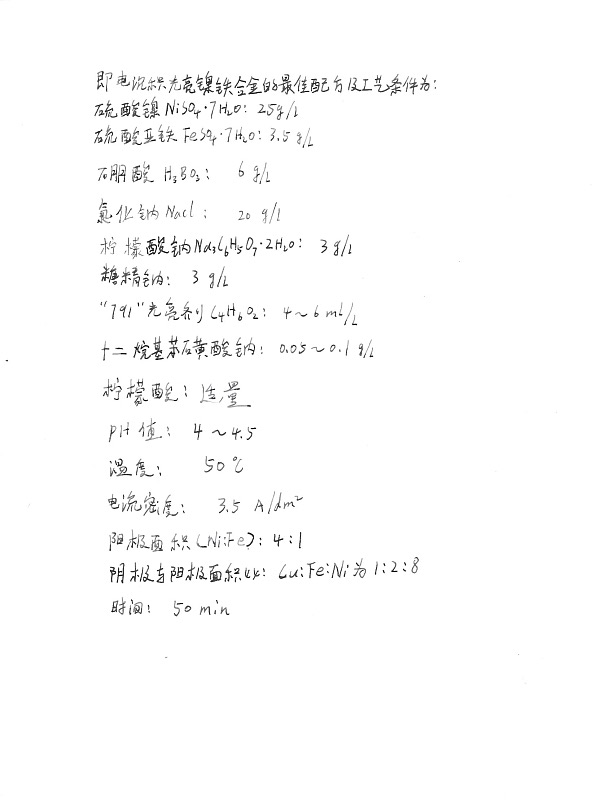 即电沉积光亮镍铁合金的最佳配方及工艺条件为:
硫酸镍NiSO₄·7H₂O: 25g/L
硫酸亚铁FeSO₄·7H₂O: 3.5g/L
硼酸 H₃BO₃: 6g/L
氯化钠NaCl: 20 g/L
柠檬酸钠Na₃C₆H₅O₇·2H₂O: 3g/L
糖精钠: 3g/L
"791"光亮剂C₄H₆O₂: 4~6ml/L
十二烷基苯磺酸钠: 0.05~0.1g/L
柠檬酸: 适量
PH值: 4~4.5
温度: 50℃
电流密度: 3.5 A/dm²
阳极面积(Ni:Fe): 4:1
阴极与阳极面积比: Cu:Fe:Ni为1:2:8
时间: 50 min